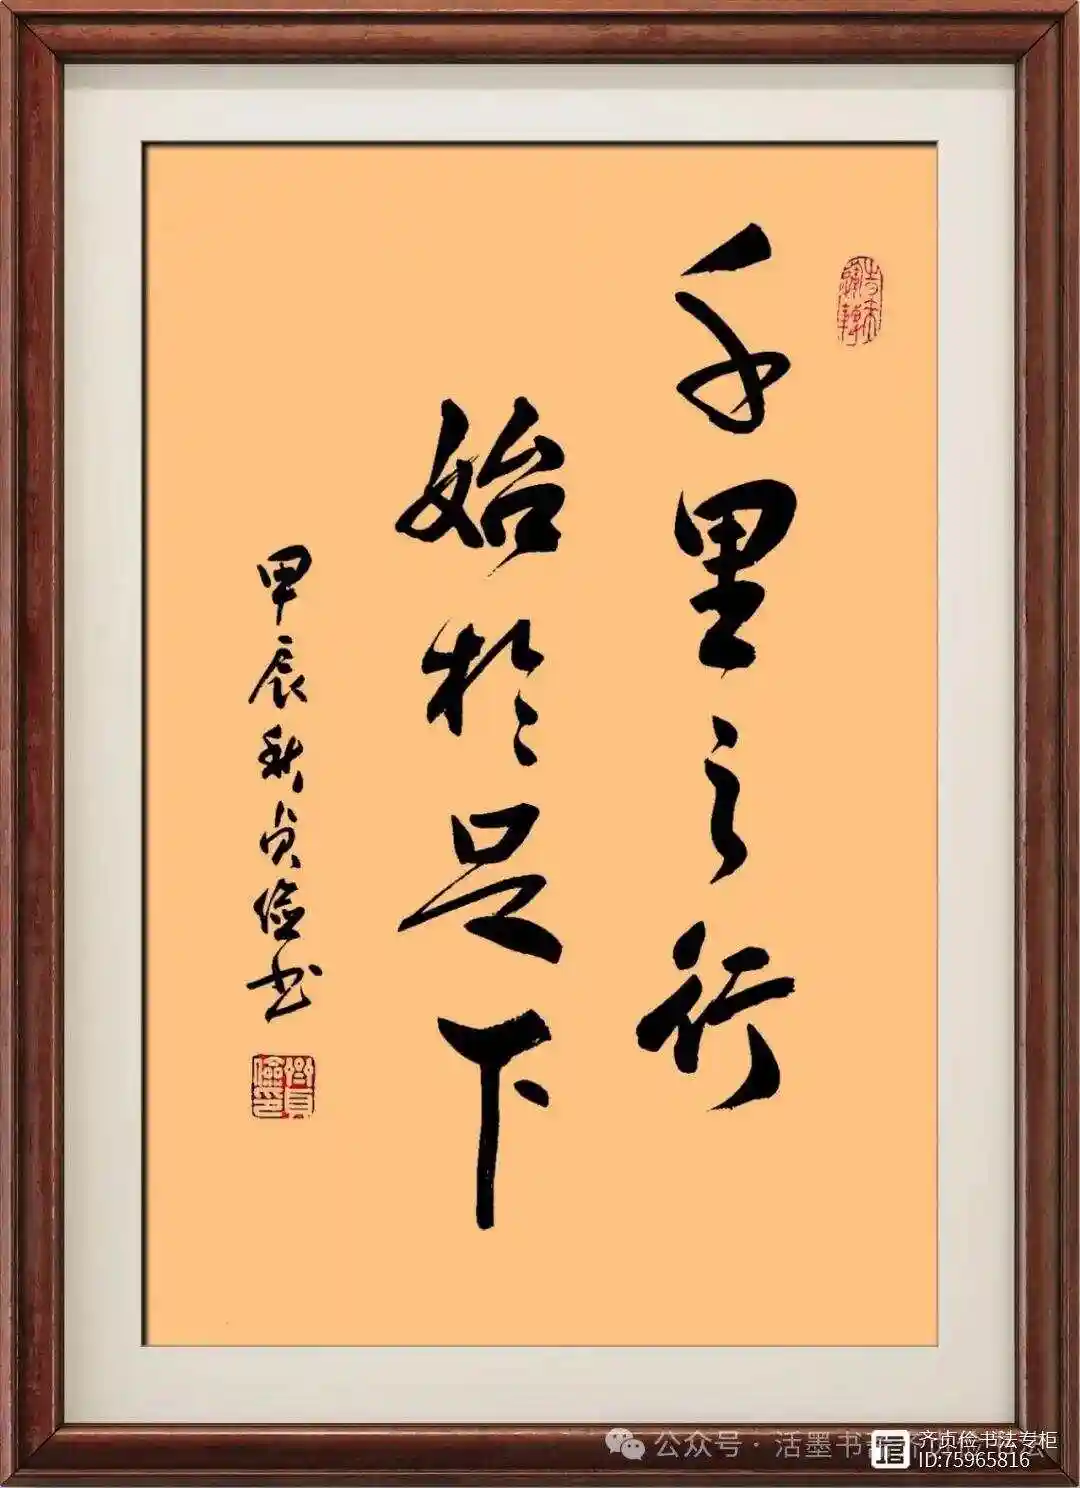 千里之行
始於足下
甲辰秋贞俭书
公众号·活墨书
齐贞俭书法专柜
ID:75965816